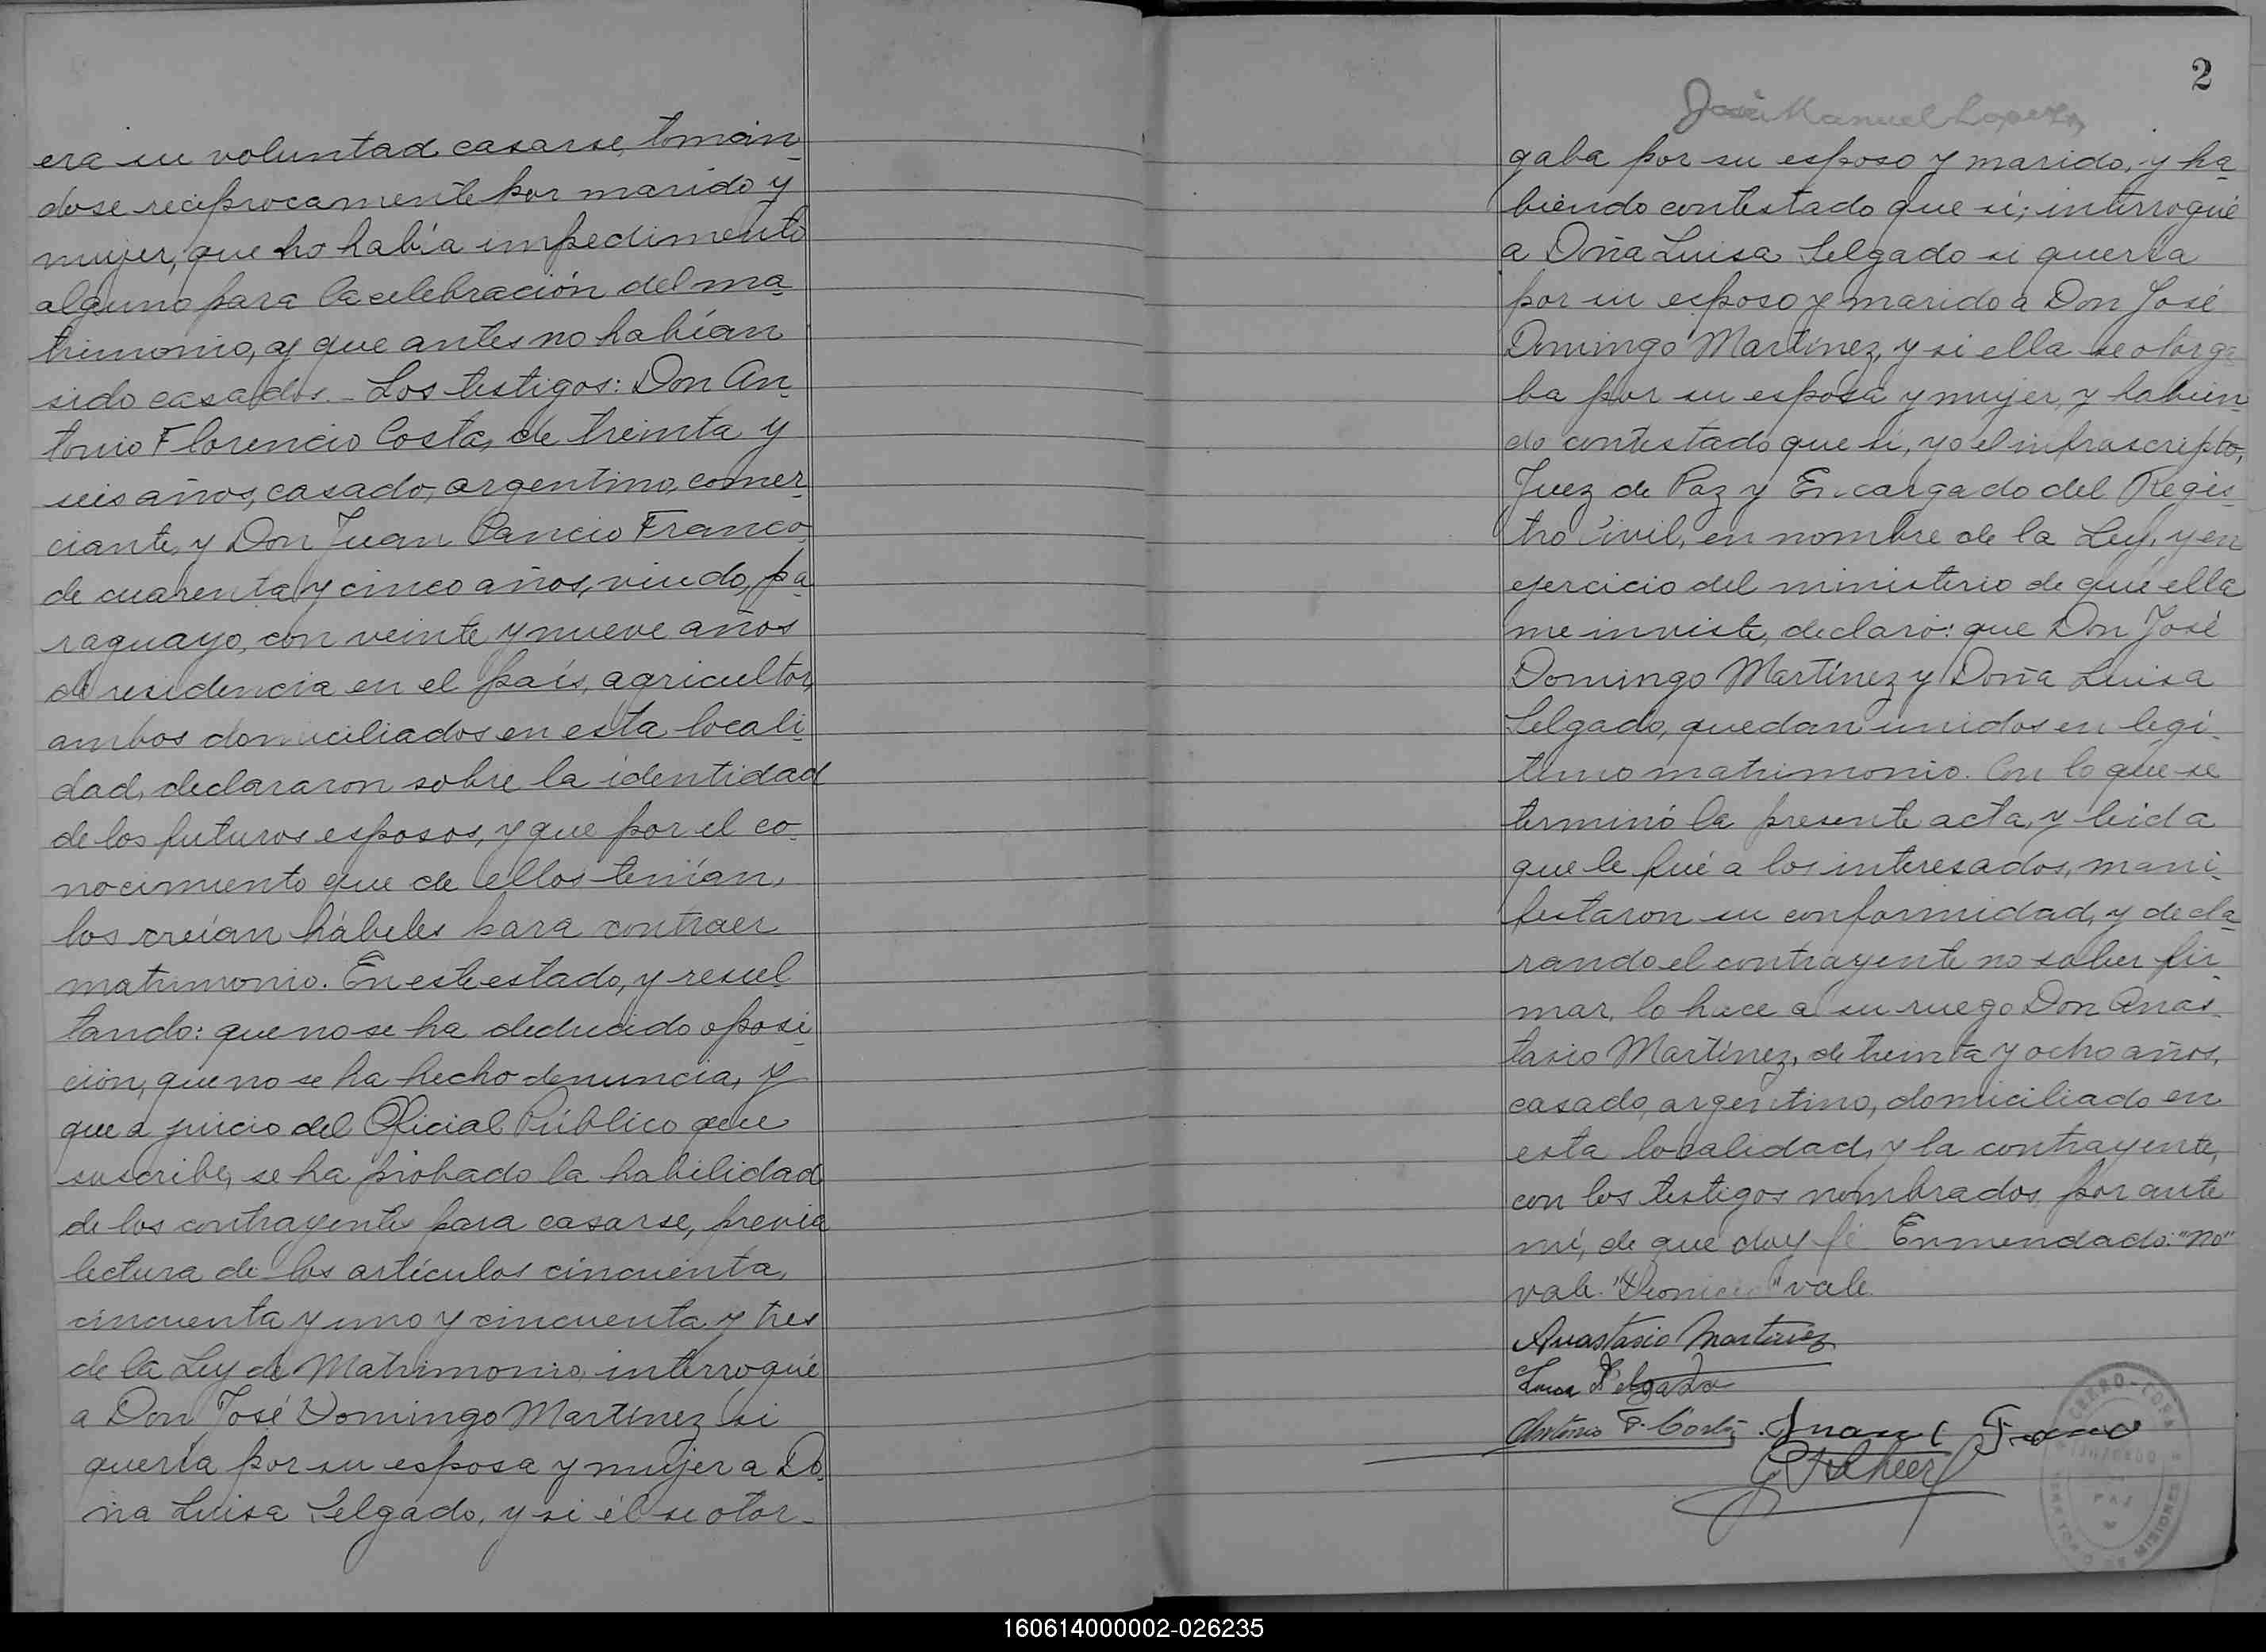 era su voluntad casarse, tomán-
dose recíprocamente por marido y
mujer, que no había impedimento
alguno para la celebración del ma-
trimonio, y que antes no habían
sido casados.- Los testigos: Don An-
tonio Florencio Costa, de treinta y
seis años, casado, argentino, comer-
ciante, y Don Juan Pancio Franco,
de cuarenta y cinco años, viudo, pa-
raguayo, con veinte y nueve años
de residencia en el país, agricultor,
ambos domiciliados en esta locali-
dad, declararon sobre la identidad
de los futuros esposos, y que por el co-
nocimiento que de ellos tenían,
los creían hábeles para contraer
matrimonio. En este estado, y resul-
tando: que no se ha deducido oposi-
ción, que no se ha hecho denuncia, y
que a juicio del Oficial Público que
suscribe, se ha probado la habilidad
de los contrayentes para casarse, previa
lectura de los artículos cincuenta,
cincuenta y uno y cincuenta y tres
de la Ley de Matrimonio, interrogué
a Don José Domingo Martínez si
quería por su esposa y mujer a Do-
ña Luisa Selgado, y si él se otor-
2
José Manuel Lopez
gaba por su esposo y marido, y ha-
biendo contestado que sí; interrogué
a Doña Luisa Selgado si quería
por su esposo y marido a Don José
Domingo Martínez, y si ella se otorga
ba por su esposa y mujer, y habien-
do contestado que sí, yo el infrascripto,
Juez de Paz y Encargado del Regis-
tro Civil, en nombre de la Ley, y en
ejercicio del ministerio de que ella
me inviste, declaro: que Don José
Domingo Martínez y Doña Luisa
Selgado, quedan unidos en legí-
timo matrimonio. Con lo que se
terminó la presente acta, y leida
que le fué a los interesados, mani-
festaron su conformidad, y decla-
rando el contrayente no saber fir-
mar, lo hace a su ruego Don Anas-
tasio Martínez, de treinta y ocho años,
casado, argentino, domiciliado en
esta localidad, y la contrayente,
con los testigos nombrados, por ante
mí, de que doy fé. Enmendado: "no"
vale. "Dionicio" vale.
Anastasio Martinez
Luisa Selgado
Antonio F. Costa Juan C Franco
CERRO-CORA
PAZ
MISIONES
160614000002-026235